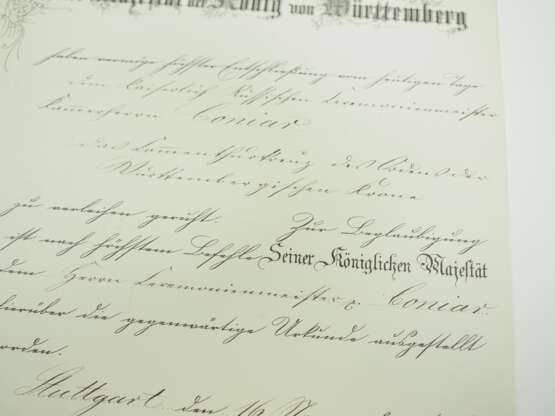 Majestät der König von Württemberg
haben vermöge höchster Entschließung vom heutigen Tage
dem Kaiserlich Russischen Ceremonienmeister
Kammerherrn Coniar
das Commenthurkreuz des Ordens der
Württembergischen Krone
zu verleihen geruht. Zur Beglaubigung
ist nach höchstem Befehle Seiner Königlichen Majestät
dem Herrn Ceremonienmeister p. Coniar
hierüber die gegenwärtige Urkunde ausgestellt
worden.
Stuttgart den 16